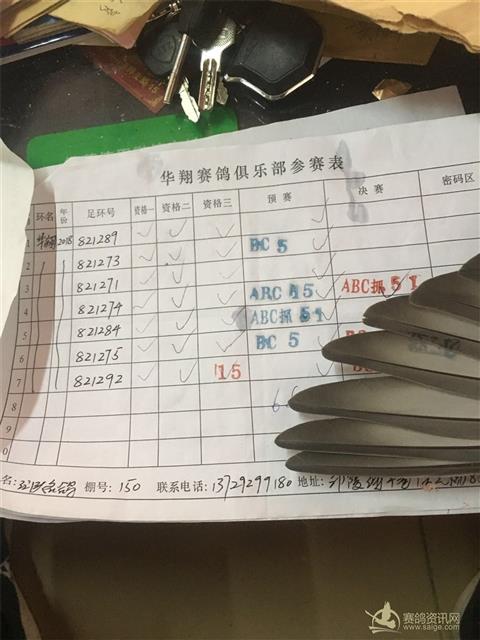 华翔赛鸽俱乐部参赛表
环名 年份 足环号 资格一 资格二 资格三 预赛 决赛 密码区
1 2018 821289 BC 5
2 821273
3 821271
4 821274 ABC 15 ABC抓 51
5 821284 ABC抓 51
6 821275 BC 5
7 821292 15
8
9
0
名: 棚号: 150 联系电话: 13729299180 地址:
赛鸽资讯网
www.saige.com